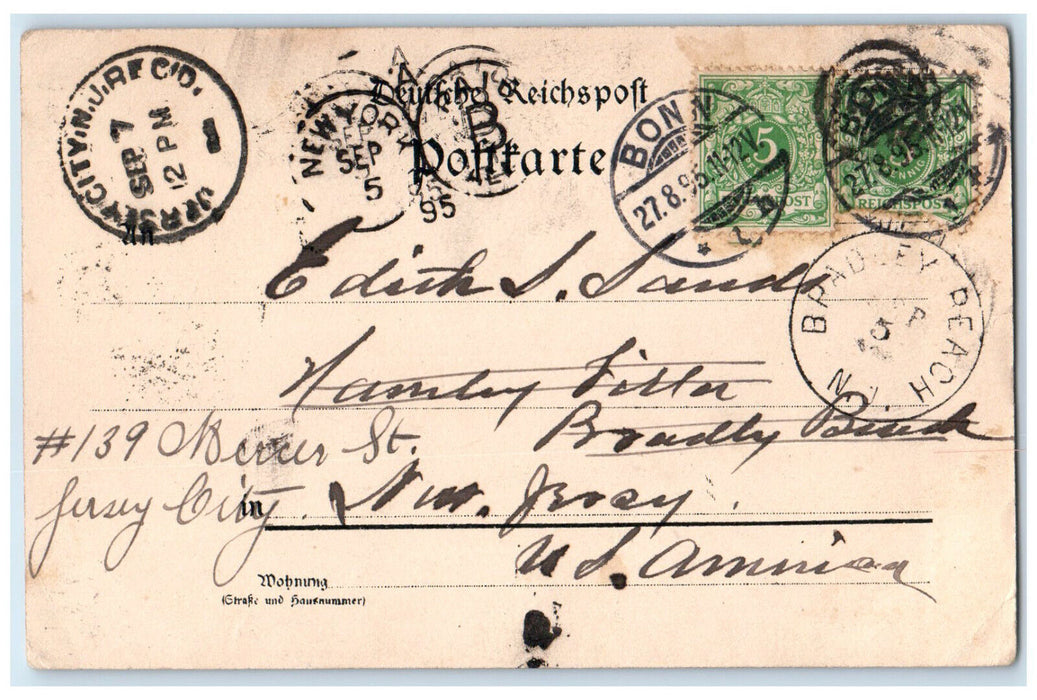 JERSEY CITY, N.J. REC'D.
SEP 7
12 PM
NEW YORK
SEP
5
95
Deutsche Reichspost
Postkarte
BONN
27.8.95.11-12V.
5
BONN
27.8.95.11-12V.
REICHSPOST
BRADLEY BEACH
N.J.
An
Edith S. Sands
Hamley Villa
Bradly Beach
#139 Mercer St.
Jersey City.
in
New. Jersey.
U.S. America
Wohnung
(Straße und Hausnummer)